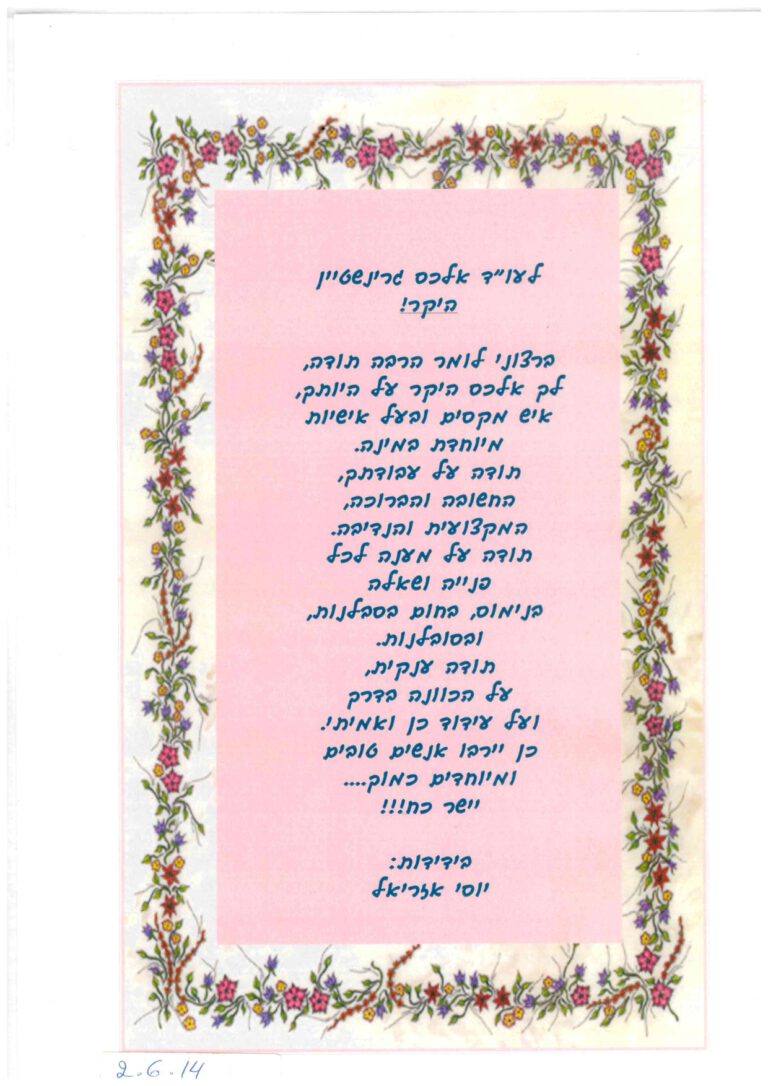 לעו"ד אלכס גרינשטיין
היקר!
ברצוני לומר הרבה תודה,
לך אלכס היקר על היותך,
איש מקסים ובעל אישיות
מיוחדת במינה.
תודה על עבודתך,
החשובה והברוכה,
המקצועית והנדיבה.
תודה על מענה לכל
פנייה ושאלה
בנימוס, בחום בסבלנות,
ובסובלנות.
תודה ענקית,
על הכוונה בדרך
ועל עידוד כן ואמיתי.
כן יירבו אנשים טובים
ומיוחדים כמוך....
יישר כח!!!
בידידות:
יוסי אזריאל
2.6.14